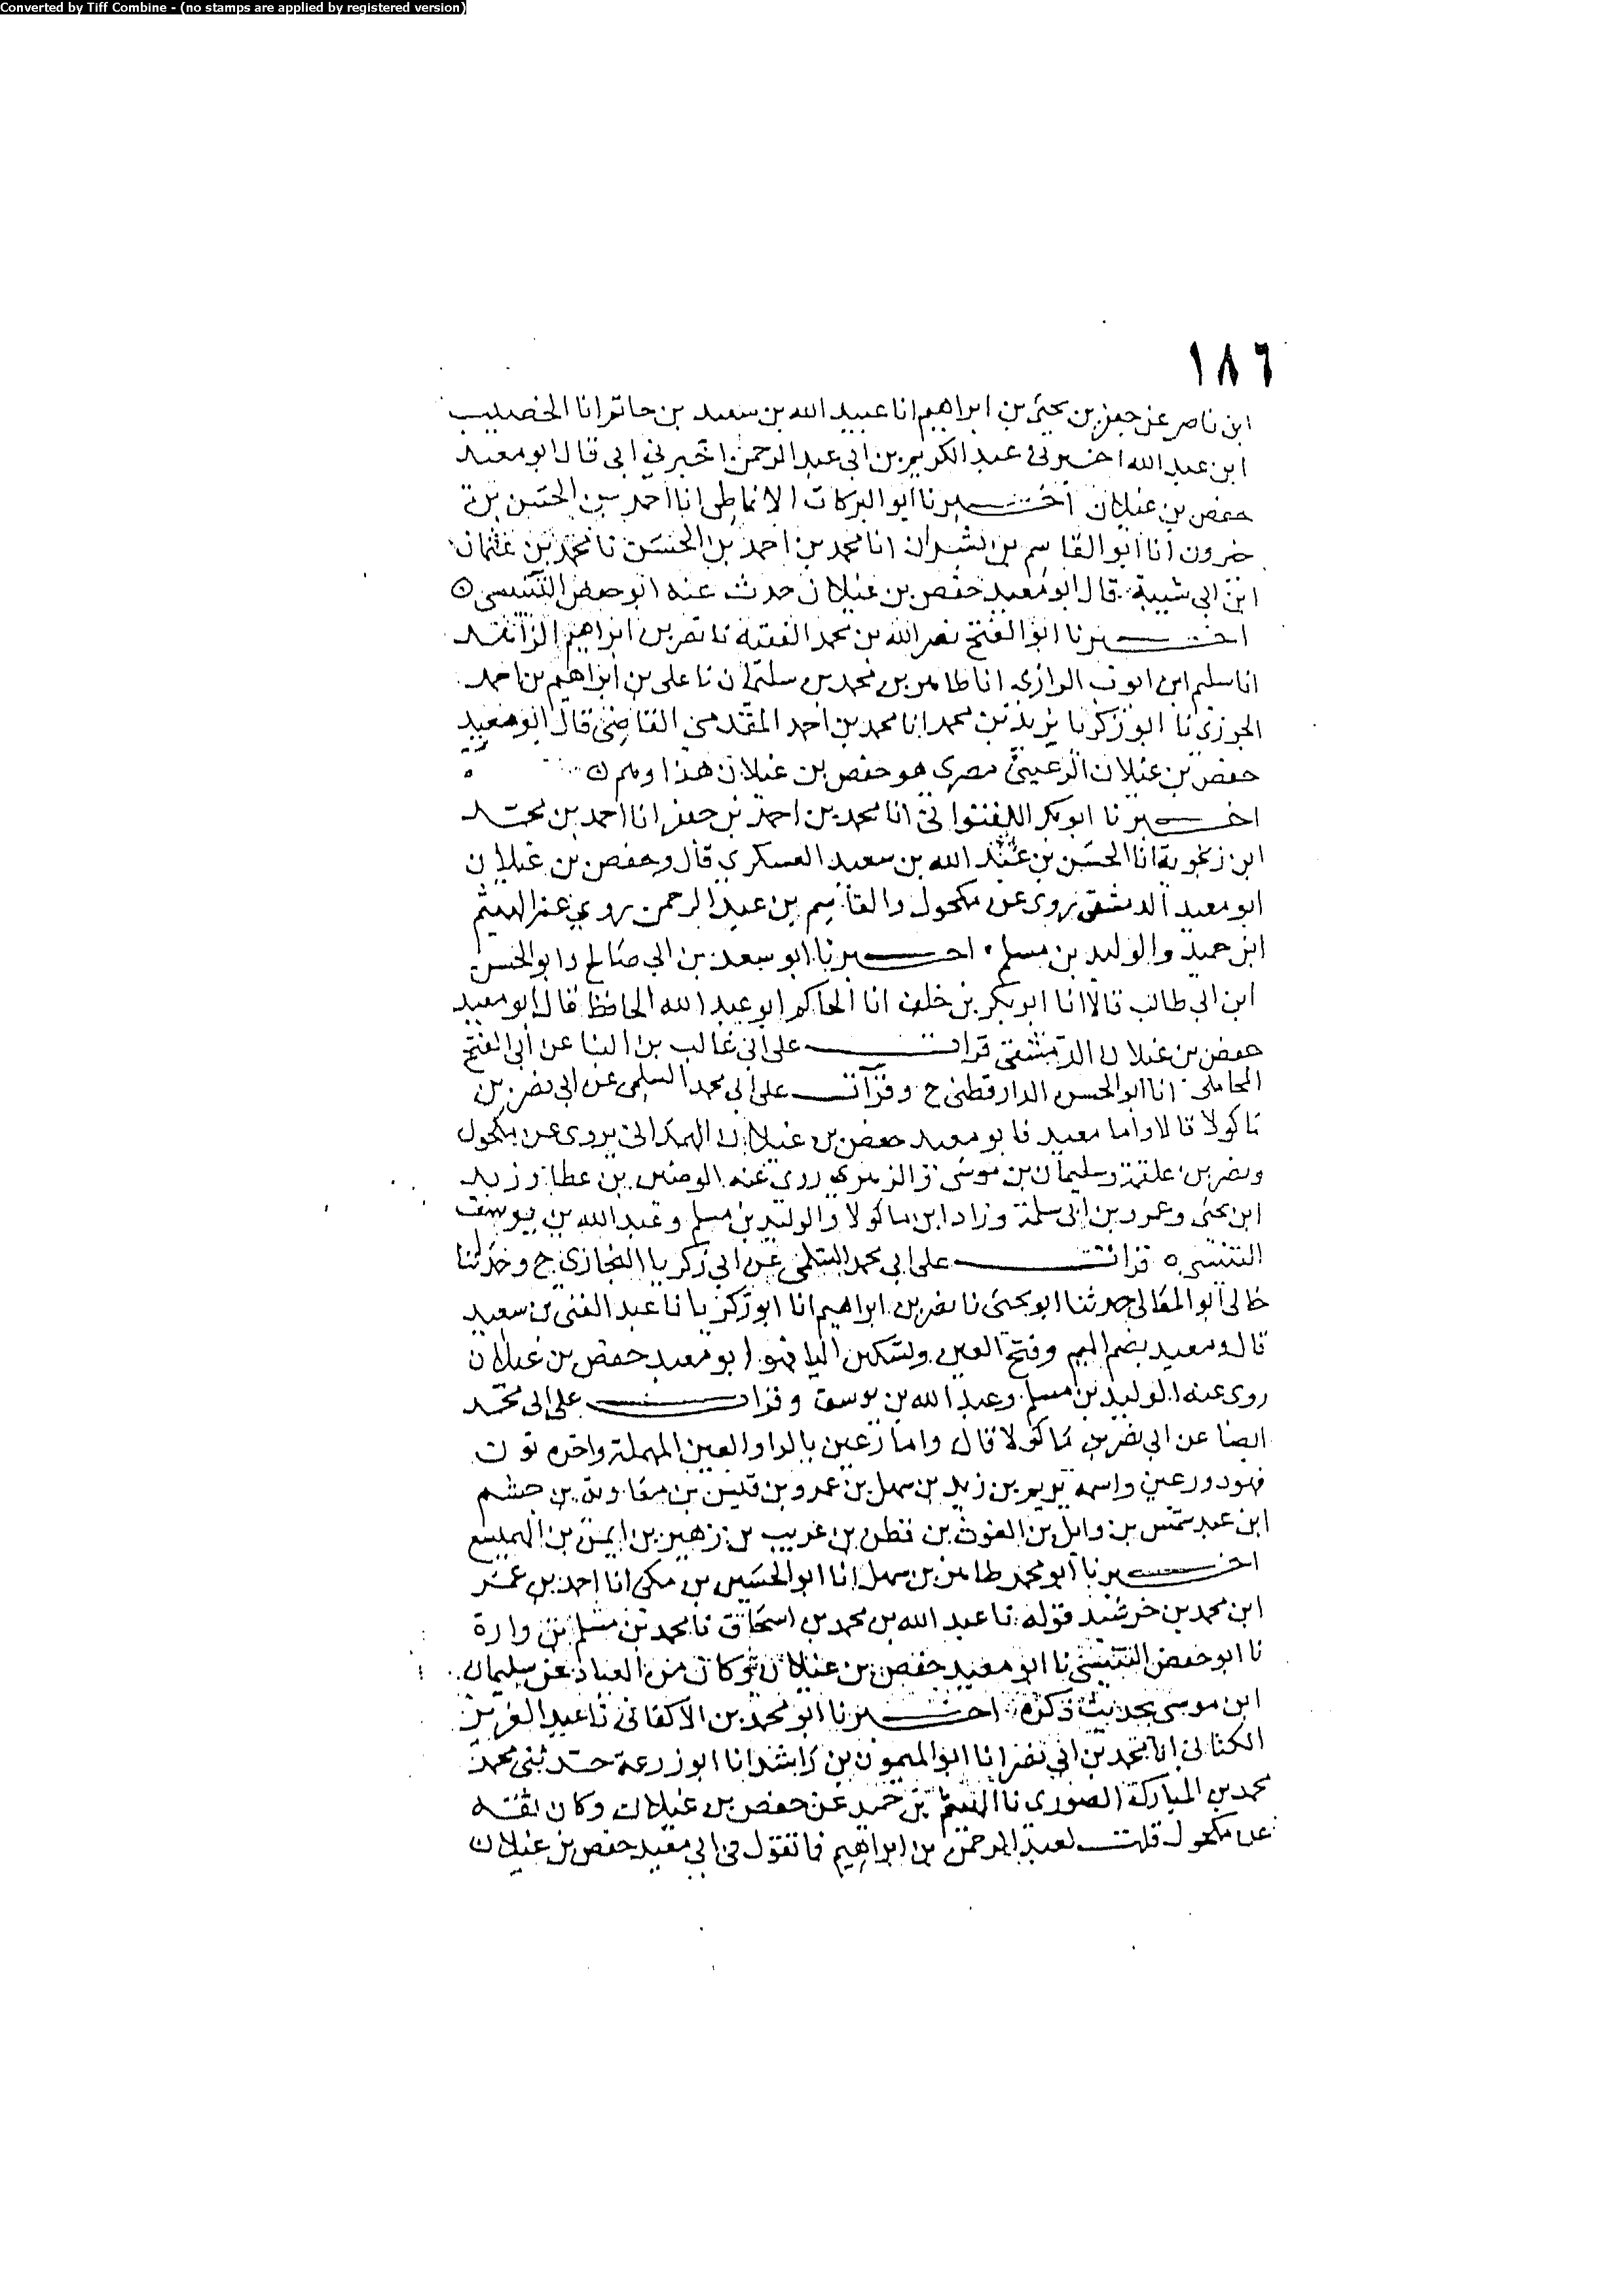 Converted by Tiff Combine - (no stamps are applied by registered version)
١٨٦
ابن ناصر عن جعفر بن يحيى بن ابراهيم انا عبيد الله بن سعيد بن حاتم انا الخصيب
ابن عبد الله اخبرني عبد الكريم بن ابي عبد الرحمن اخبرني ابي قال ابو معيد
حفص بن غيلان اخبرنا ابو البركات الانماطي انا احمد بن الحسن بن
خيرون انا ابو القاسم بن بشران انا محمد بن احمد بن الحسن نا محمد بن عثمان
ابن ابي شيبة قال ابو معيد حفص بن غيلان حدث عنه ابو حفص التنيسي ٥
اخبرنا ابو الفتح نصر الله بن محمد الفقيه نا نصر بن ابراهيم الزاهد
انا سليم ابن ايوب الرازي انا طاهر بن محمد بن سليمان نا علي بن ابراهيم بن احمد
الجوزي نا ابو زكريا يزيد بن محمد انا محمد بن احمد المقدمي القاضي قال ابو معيد
حفص بن غيلان الرعيني مصري هو حفص بن غيلان هذا وهم
اخبرنا ابو بكر اللفتواني انا محمد بن احمد بن جعفر انا احمد بن محمد
ابن زنجوية انا الحسن بن عبد الله بن سعيد العسكري قال وحفص بن غيلان
ابو معيد الدمشقي روى عن مكحول والقاسم بن عبد الرحمن روي عنه الهيثم
ابن حميد والوليد بن مسلم اخبرنا ابو سعد بن ابي صالح وابو الحسن
ابن ابي طالب قالا انا ابو بكر بن خلف انا الحاكم ابو عبد الله الحافظ قال ابو معيد
حفص بن غيلان الدمشقي قرات على ابي غالب بن البنا عن ابي الفتح
المحاملي انا ابو الحسن الدارقطني ح وقرات على ابي محمد السلمي عن ابي نصر بن
ماكولا قالا واما معيد فابو معيد حفص بن غيلان الهمداني يروى عن مكحول
ونصر بن علقمة وسليمان بن موسى والزهري روى عنه الوضين بن عطا وزيد
ابن يحيى وعمرو بن ابي سلمة وزاد ابن ماكولا والوليد بن مسلم وعبد الله بن يوسف
التنيسي ٥ قرات على ابي محمد السلمي عن ابي زكريا البخاري ح وحدثنا
خالي ابو المعالي حدثنا ابو يحيى نا نصر بن ابراهيم انا ابو زكريا نا عبد الغني بن سعيد
قال ومعيد بضم الميم وفتح العين وتسكين اليا فهو ابو معيد حفص بن غيلان
روى عنه الوليد بن مسلم وعبد الله بن يوسف وقرات على ابي محمد
ايضا عن ابي نصر بن ماكولا قال واما رعين بالرا والعين المهملة واخره نون
فهو ذو رعين واسمه يريم بن زيد بن سهل بن عمرو بن قيس بن معاوية بن جشم
ابن عبد شمس بن وائل بن الغوث بن قطن بن عريب بن زهير بن ايمن بن الهميسع
اخبرنا ابو محمد طاهر بن سهل انا ابو الحسين بن مكي انا احمد بن عمر
ابن محمد بن خرشيذ قوله نا عبد الله بن محمد بن اسحاق نا محمد بن مسلم بن وارة
نا ابو حفص التنيسي نا ابو معيد حفص بن غيلان وكان من العباد عن سليمان
ابن موسى بحديث ذكره اخبرنا ابو محمد بن الاكفاني نا عبد العزيز
الكتاني انا محمد بن ابي نصر انا ابو الميمون بن راشد انا ابو زرعة حدثني محمد
محمد بن المبارك الصوري نا الهيثم بن حميد عن حفص بن غيلان وكان ثقة
عن مكحول قلت لعبد الرحمن بن ابراهيم فما تقول في ابي معيد حفص بن غيلان